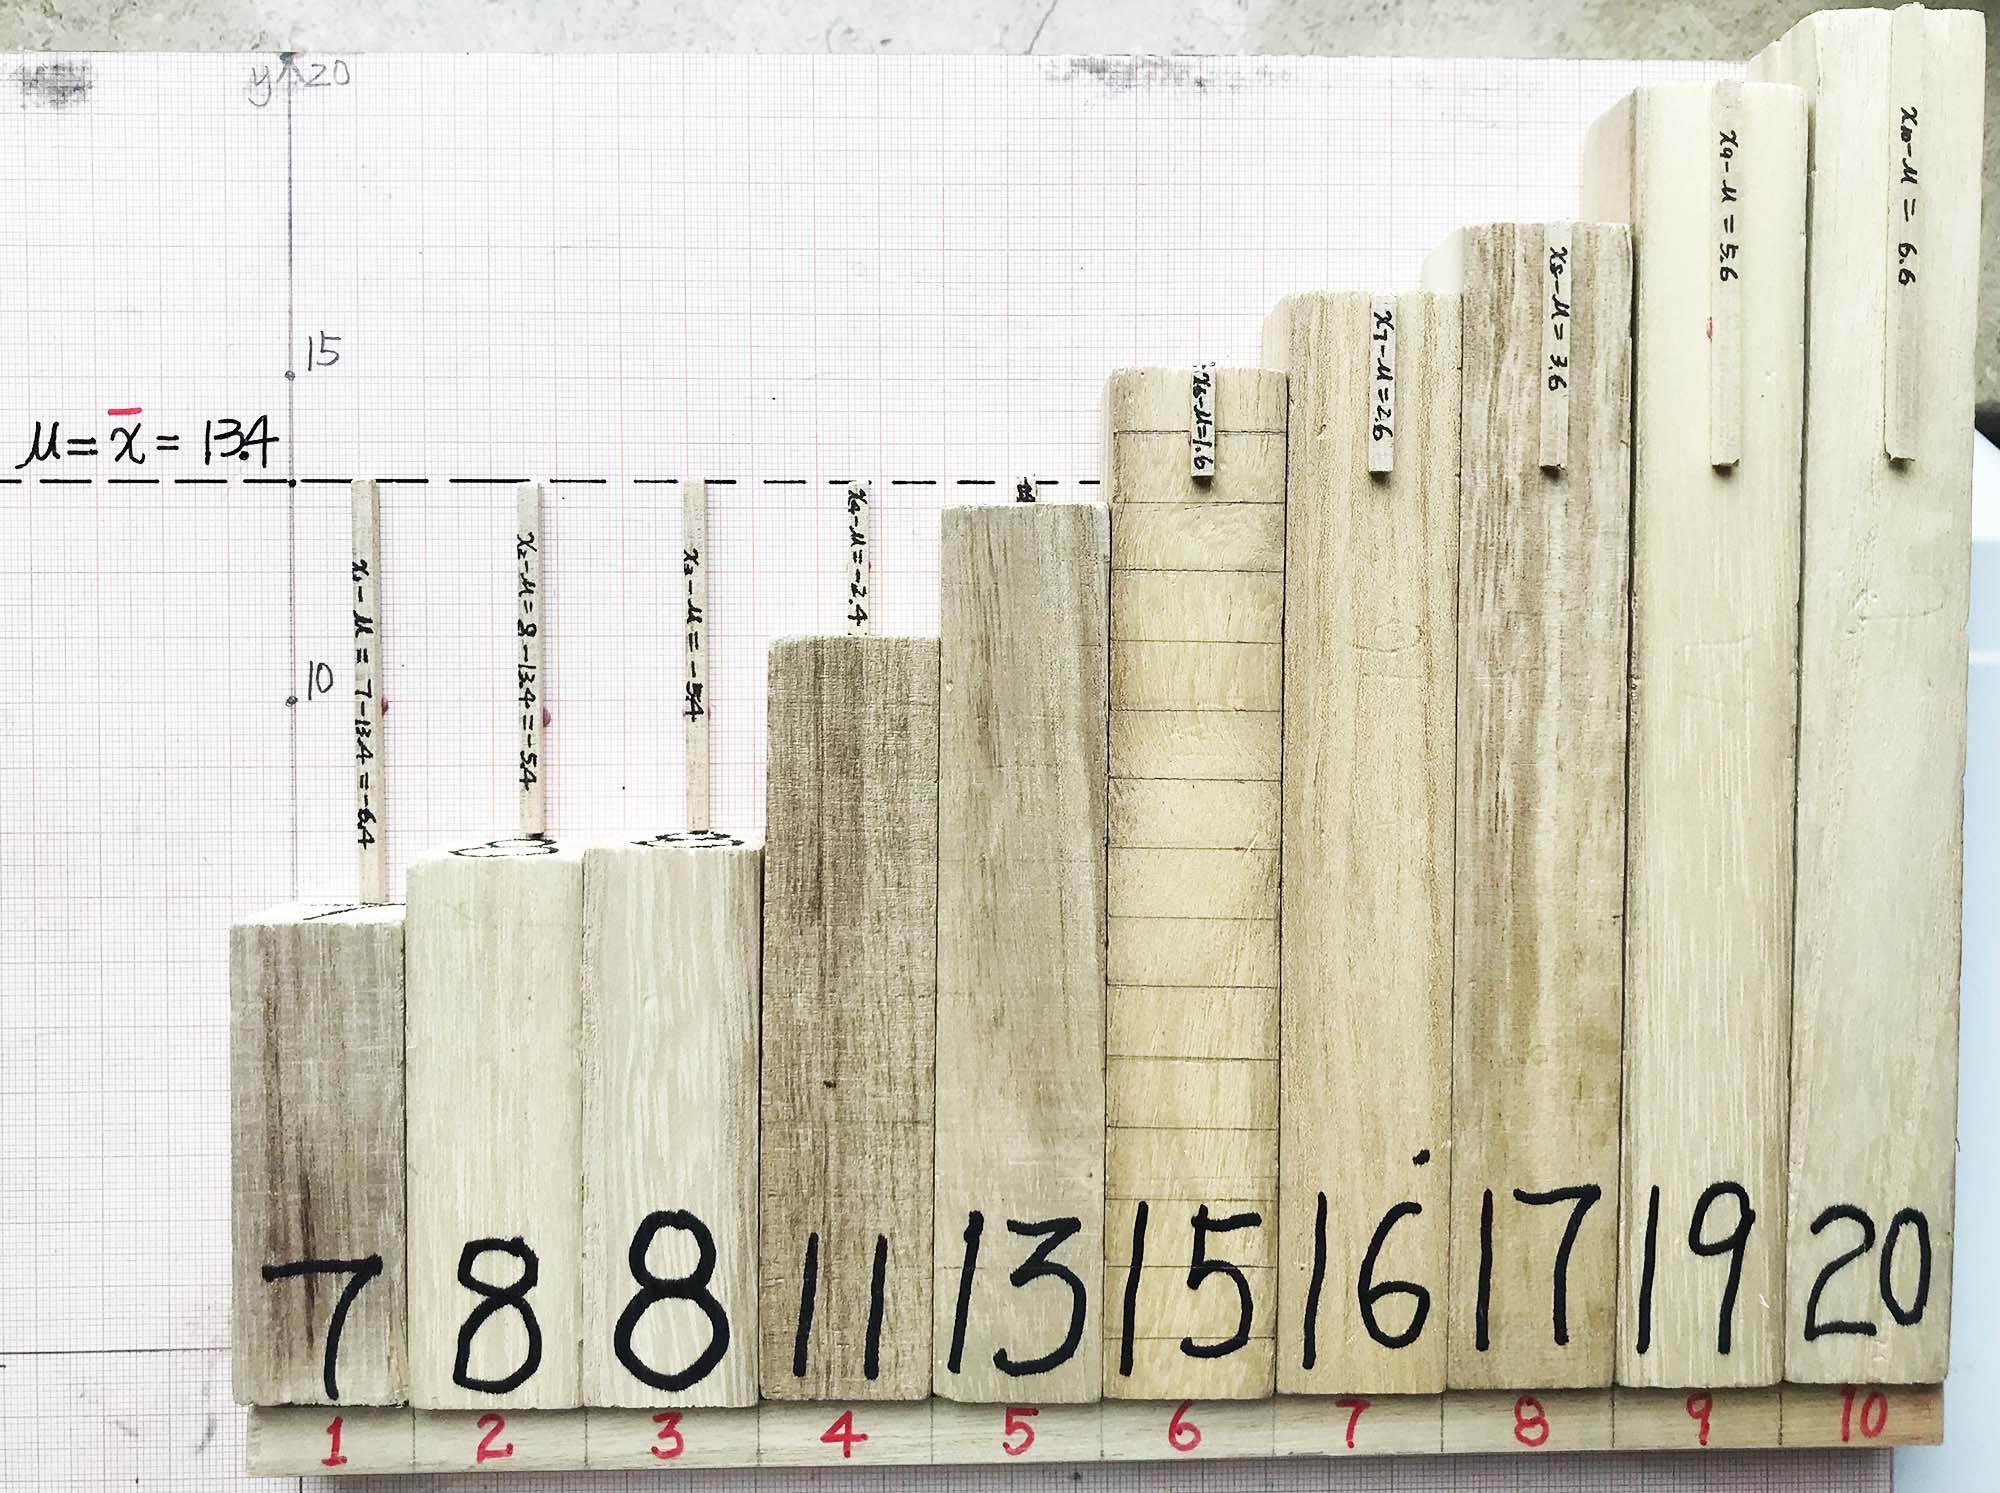 y 20
15
μ = x̄ = 13.4
10
x₁-μ = 7-13.4 = -6.4
x₂-μ = 8-13.4 = -5.4
x₃-μ = -5.4
x₄-μ = -2.4
x₆-μ = 1.6
x₇-μ = 2.6
x₈-μ = 3.6
x₉-μ = 5.6
x₁₀-μ = 6.6
7 8 8 11 13 15 16 17 19 20
1 2 3 4 5 6 7 8 9 10